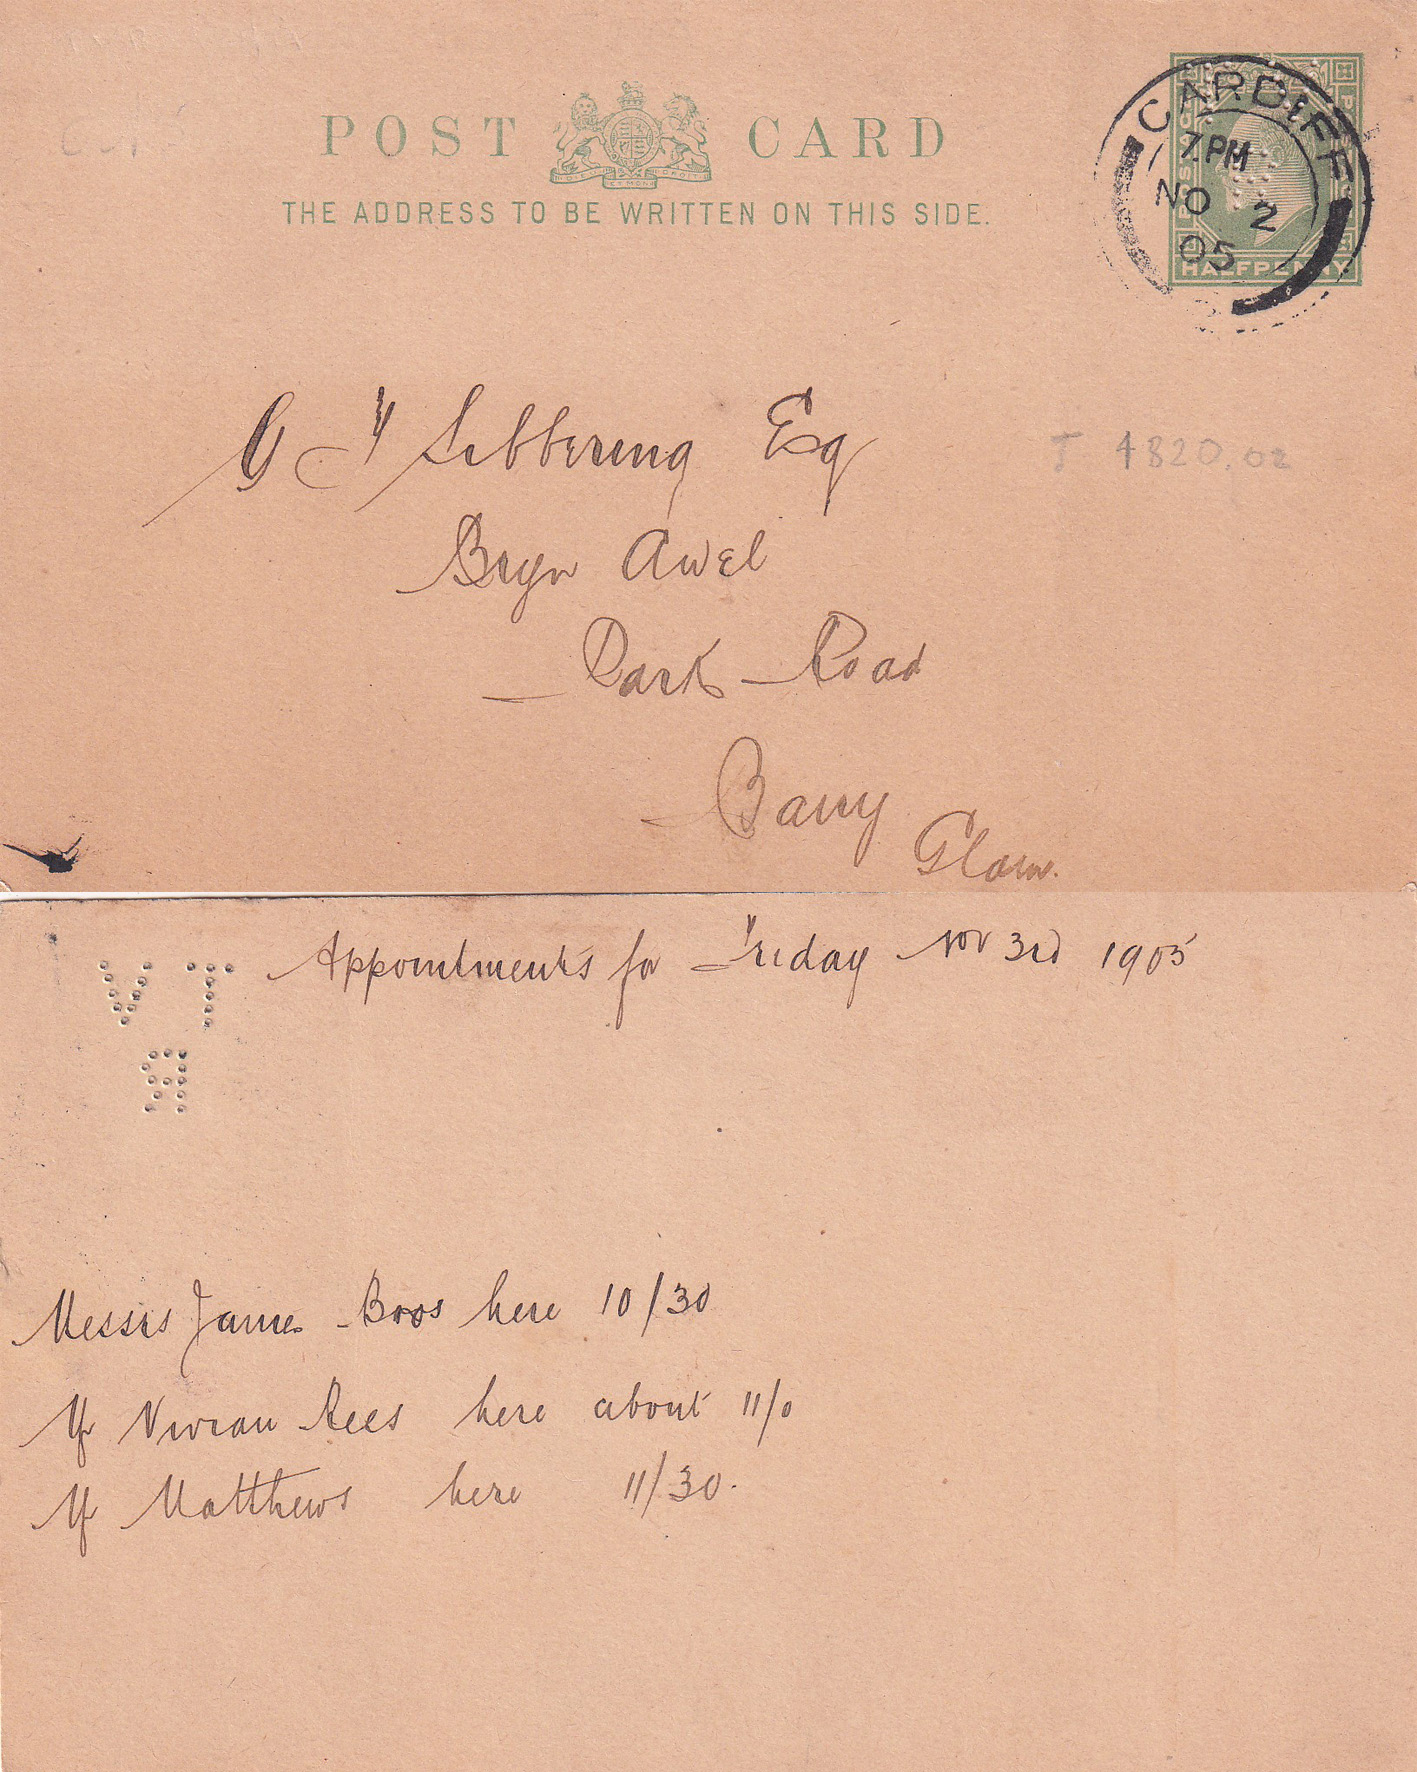 POST CARD
THE ADDRESS TO BE WRITTEN ON THIS SIDE.
CARDIFF
7.PM
NO 2
05
POSTAGE
HALFPENNY
G Sibbering Esq
Bryn Awel
Park Road
Barry
Glam.
J 4820.02
Appointments for Friday Nov 3rd 1905
Messrs James Bros here 10/30
Mr Vivian Rees here about 11/0
Mr Matthews here 11/30.